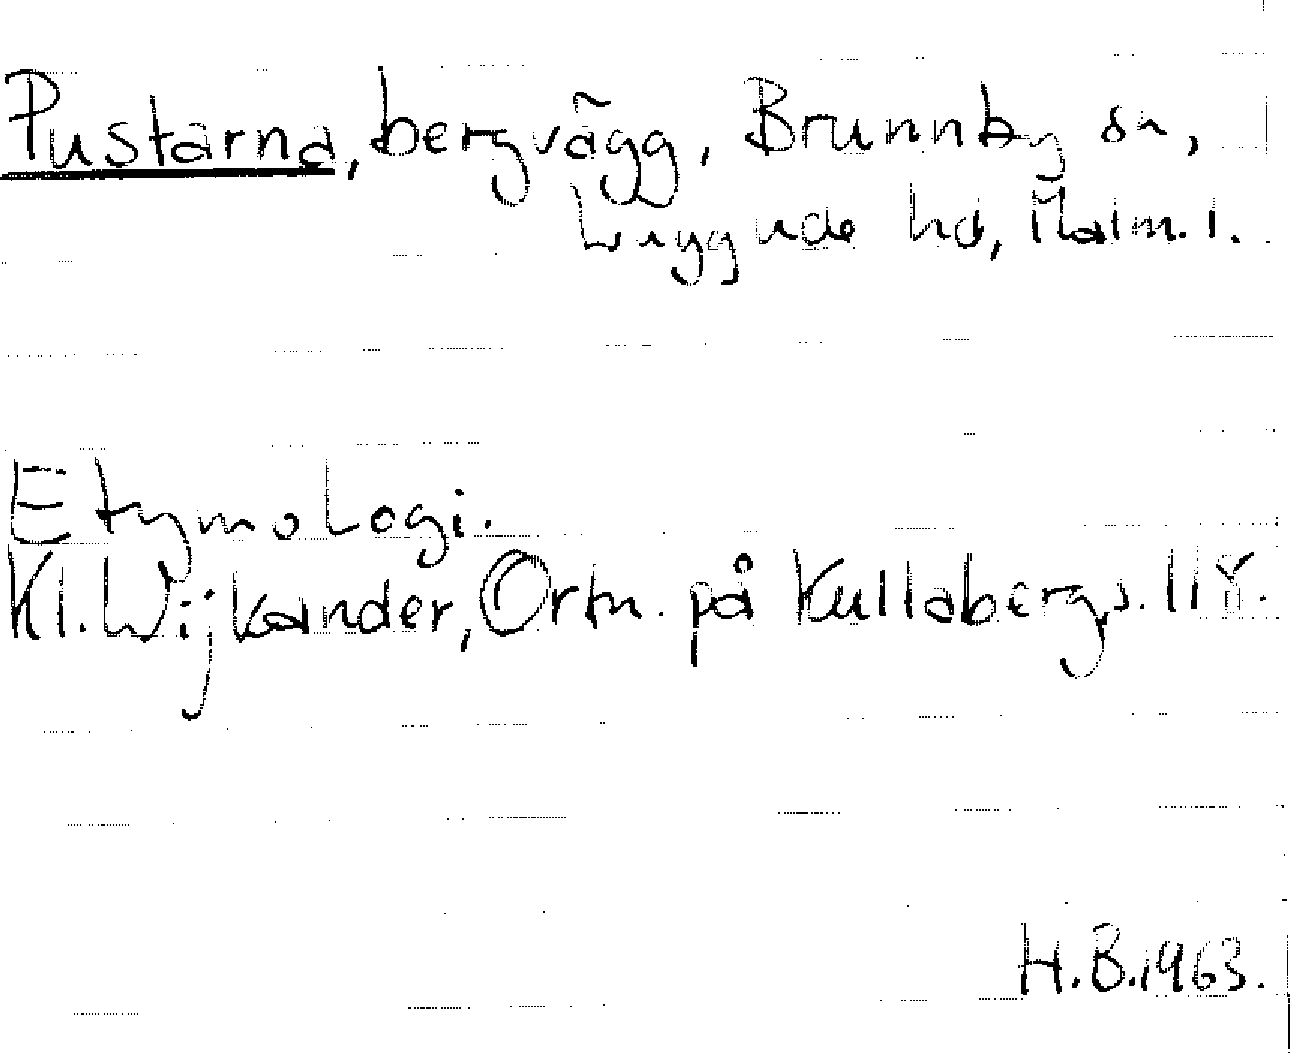 Pustarna, bergvägg, Brunnby sn,
Luggude hd, Malm. l.
Etymologi.
Kl. Wijkander, Ortn. på Kullaberg, s. 11
H.B. 1963.